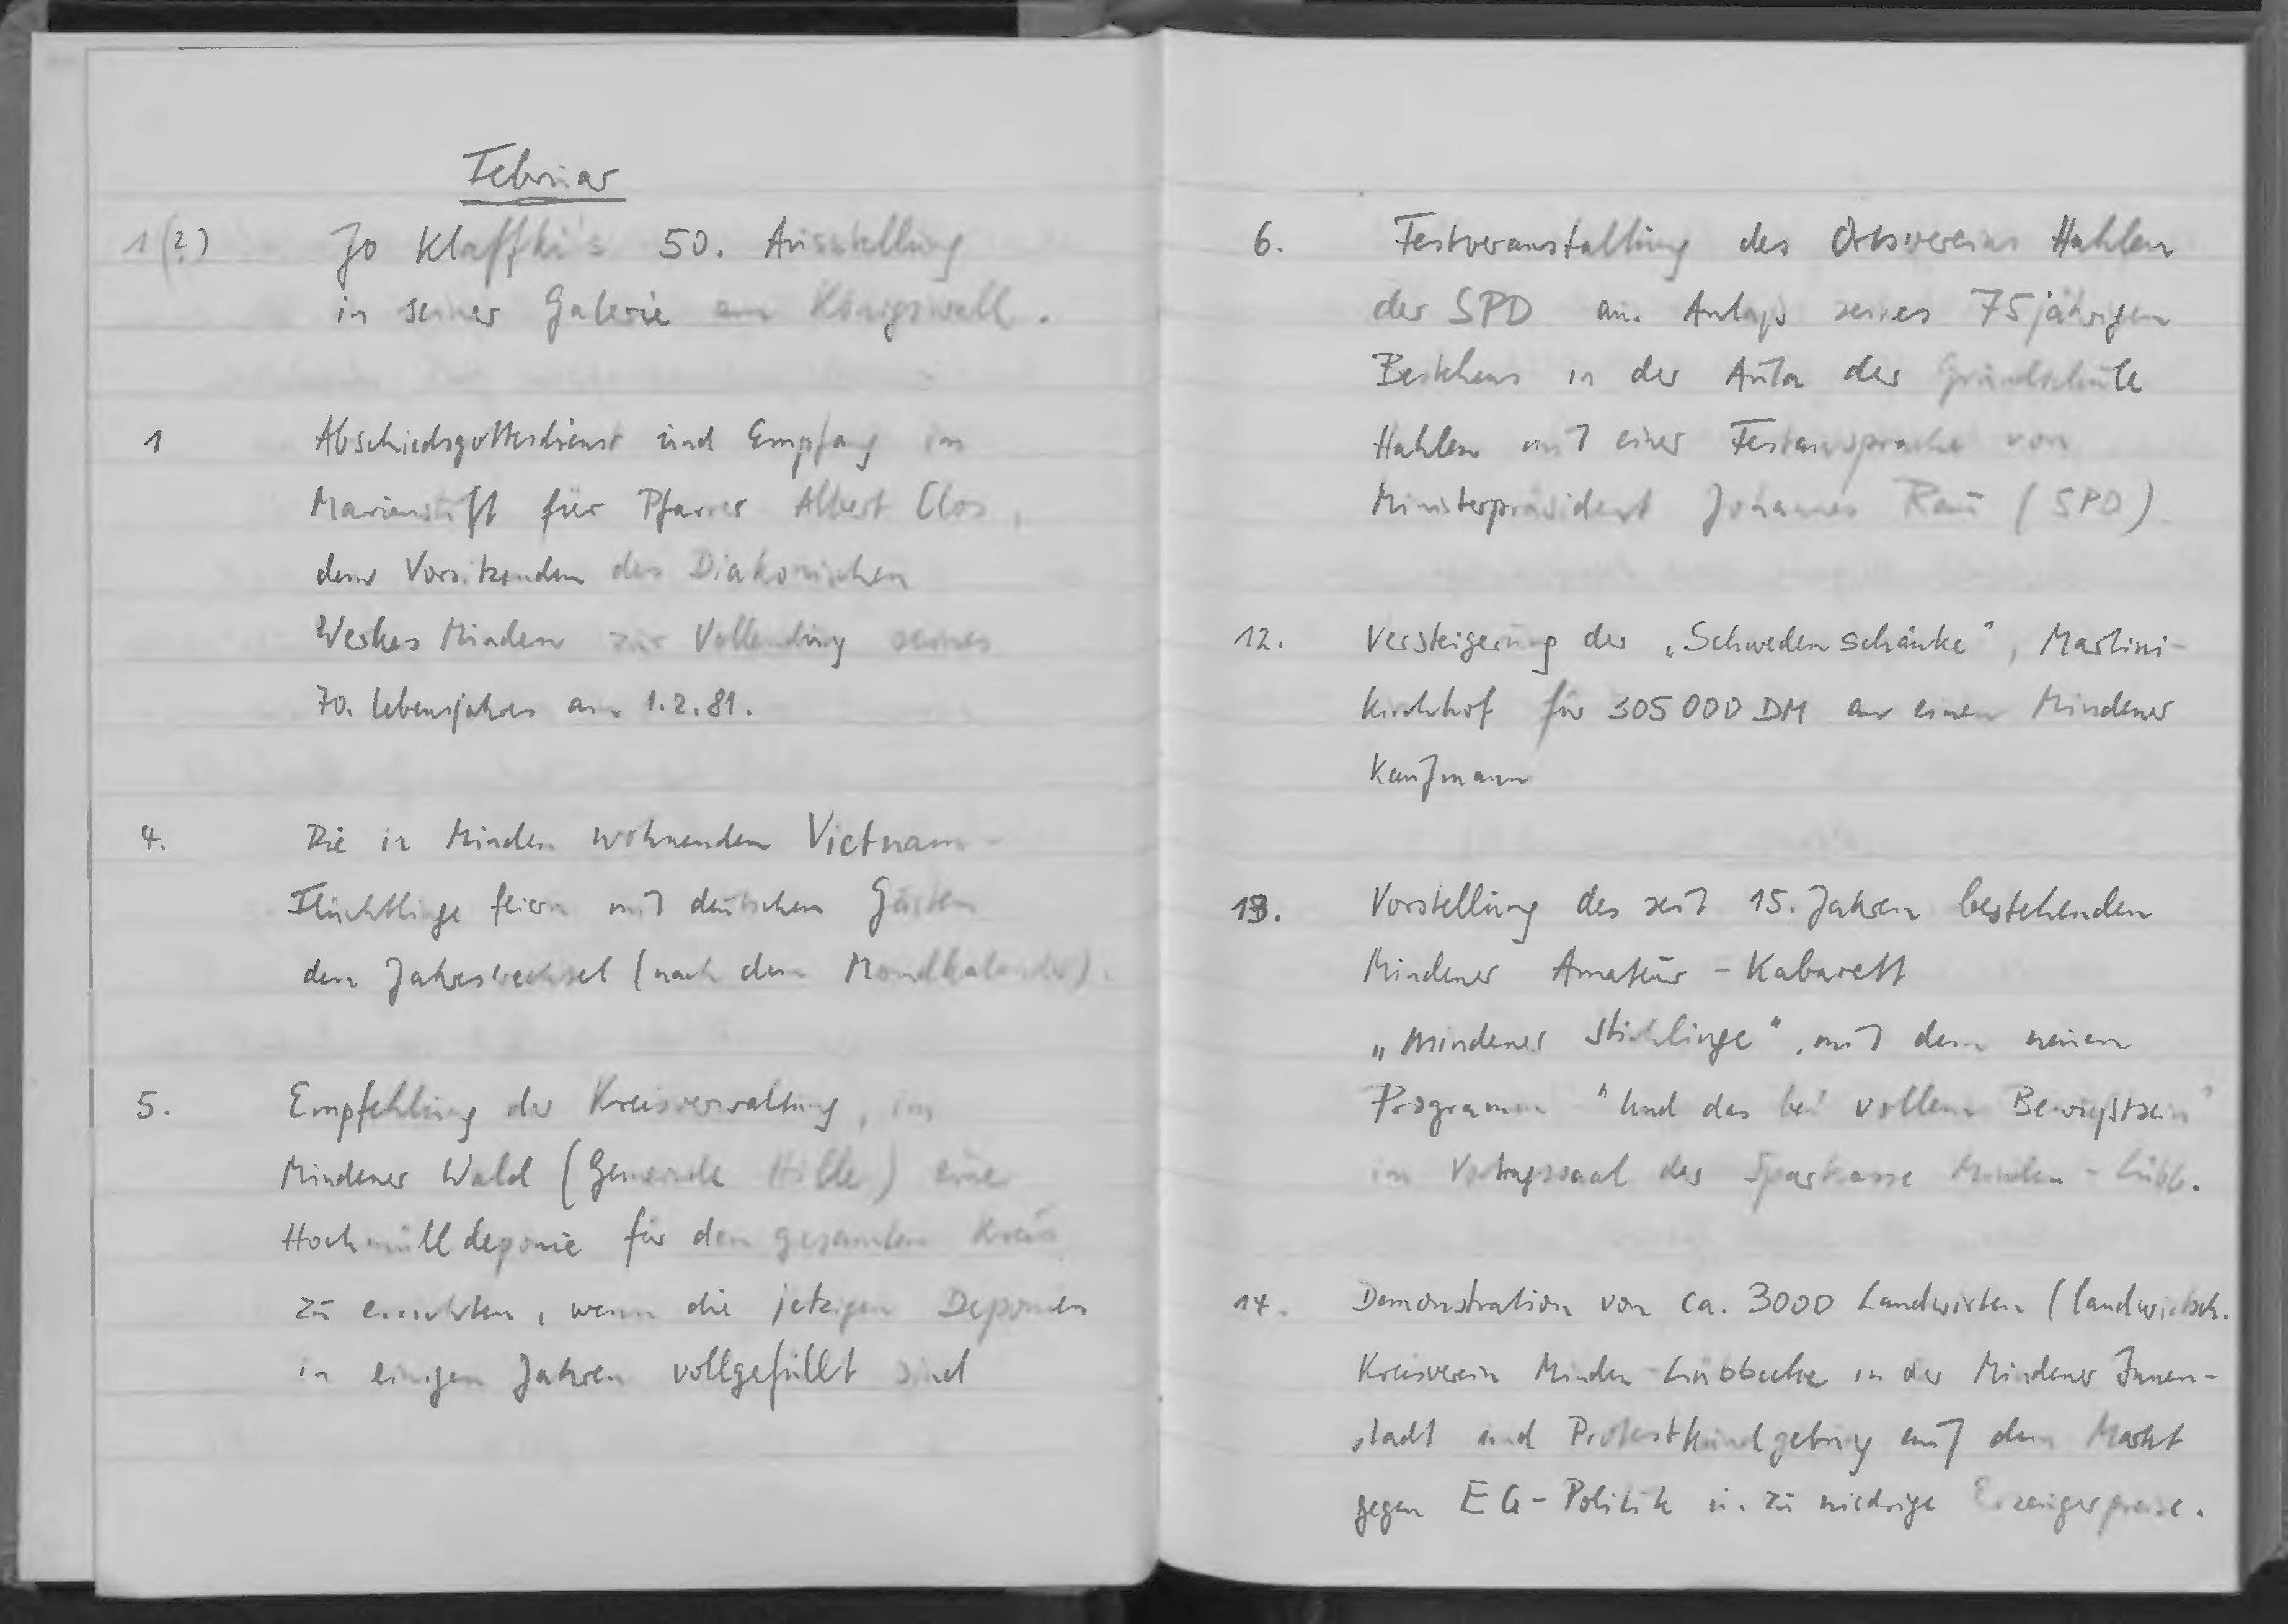 Februar
1(?) Jo Klaffki's 50. Ausstellung
in seiner Galerie am Königswall.
1 Abschiedsgottesdienst und Empfang im
Marienstift für Pfarrer Albert Clos,
dem Vorsitzenden des Diakonischen
Werkes Minden zur Vollendung seines
70. Lebensjahres am 1.2.81.
4. Die in Minden wohnenden Vietnam-
Flüchtlinge feiern mit deutschen Gästen
den Jahreswechsel (nach dem Mondkalender).
5. Empfehlung der Kreisverwaltung, im
Mindener Wald (Gemeinde Hille) eine
Hochmülldeponie für den gesamten Kreis
zu errichten, wenn die jetzigen Deponien
in einigen Jahren vollgefüllt sind
6. Festveranstaltung des Ortsvereins Hahlen
der SPD aus Anlaß seines 75jährigen
Bestehens in der Aula der Grundschule
Hahlen mit einer Festansprache von
Ministerpräsident Johannes Rau (SPD).
12. Versteigerung der „Schwedenschänke", Martini-
kirchhof für 305000 DM an einen Mindener
Kaufmann
13. Vorstellung des seit 15. Jahren bestehenden
Mindener Amateur-Kabarett
„Mindener Stichlinge", mit dem neuen
Programm "Und das bei vollem Bewußtsein"
im Vortragssaal der Sparkasse Minden-Lübb.
14. Demonstration von ca. 3000 Landwirten (landwirtsch.
Kreisverein Minden-Lübbecke in der Mindener Innen-
stadt und Protestkundgebung auf dem Markt
gegen EG-Politik u. zu niedrige Erzeugerpreise.